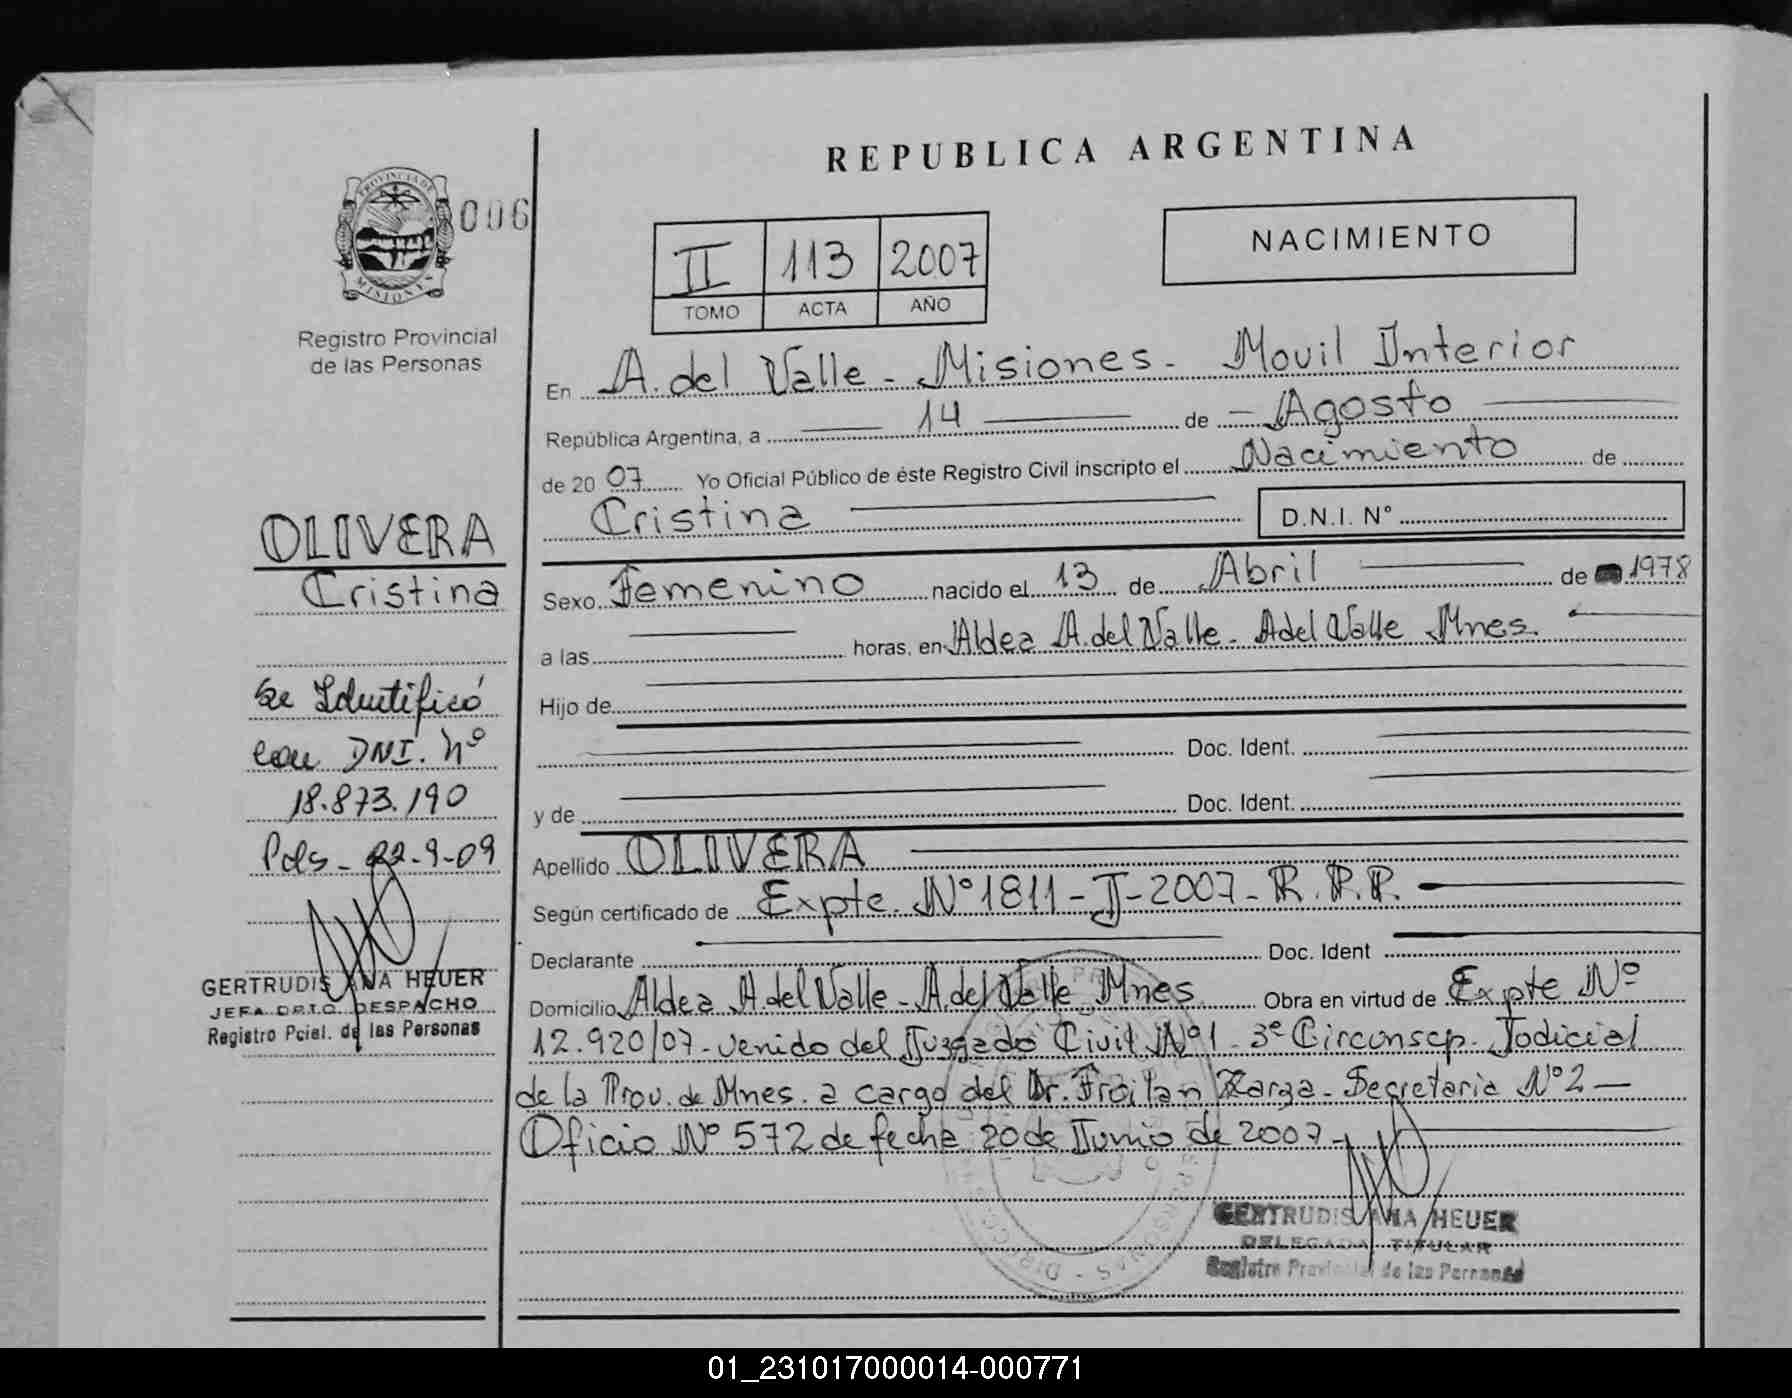 REPUBLICA ARGENTINA
PROVINCIA DE
MISIONES
006
Registro Provincial
de las Personas
II 113 2007
TOMO ACTA AÑO
NACIMIENTO
En A. del Valle - Misiones - Movil Interior
República Argentina, a 14 de - Agosto
de 20 07 Yo Oficial Público de éste Registro Civil inscripto el Nacimiento de
Cristina D.N.I. N°
Sexo Femenino nacido el 13 de Abril de 1978
a las horas, en Aldea A. del Valle - A del Valle Mnes.
Hijo de
Doc. Ident.
y de Doc. Ident.
Apellido OLIVERA
Según certificado de Expte. N° 1811 - J - 2007 - R.P.P.
Declarante Doc. Ident
Domicilio Aldea A. del Valle - A. del Valle Mnes Obra en virtud de Expte N°
12.920/07 - venido del Juzgado Civil N° 1 - 3° Circunscp. Judicial
de la Prov. de Mnes. a cargo del Dr. Froilan Zarza - Secretaria N° 2 -
Oficio N° 572 de fecha 20 de Junio de 2007 -
GERTRUDIS ANA HEUER
DELEGADA TITULAR
Registro Provincial de las Personas
OLIVERA
Cristina
Se Identificó
con DNI. N°
18.873.190
Pds - 22-9-09
GERTRUDIS ANA HEUER
JEFA DPTO. DESPACHO
Registro Pcial. de las Personas
01_231017000014-000771